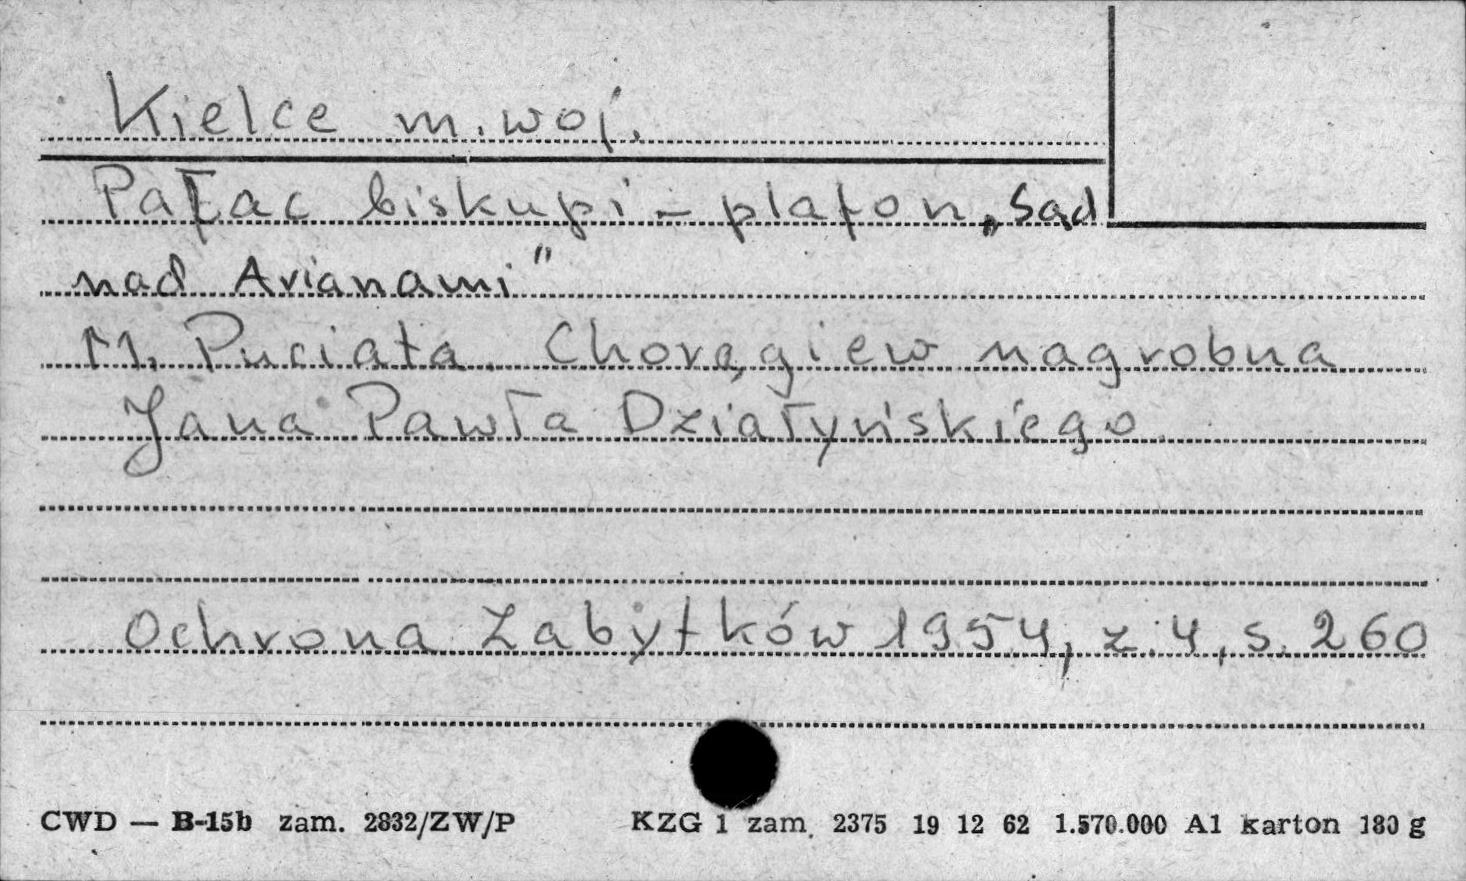 Kielce m. woj.
Pałac biskupi - plafon „Sąd
nad Arianami"
M. Puciata. Chorągiew nagrobna
Jana Pawła Działyńskiego
Ochrona Zabytków 1954, z. 4, s. 260
CWD — B-15b zam. 2832/ZW/P KZG 1 zam. 2375 19 12 62 1.570.000 A1 karton 180 g